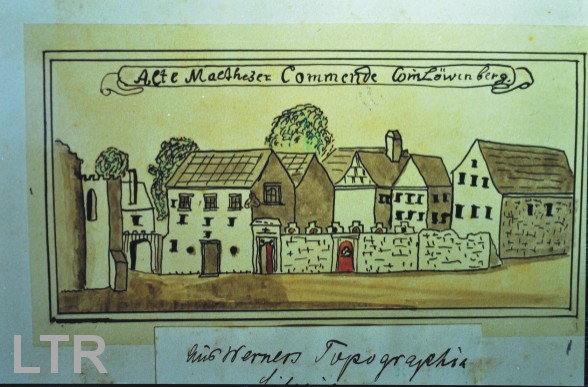 Alte Malthezer Commende Com Löwenberg.
Aus Werners Topographia
LTR